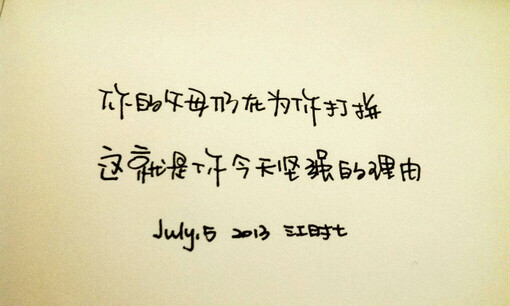 你的父母仍在为你打拼
这就是你今天坚强的理由
July.5 2013 江时七